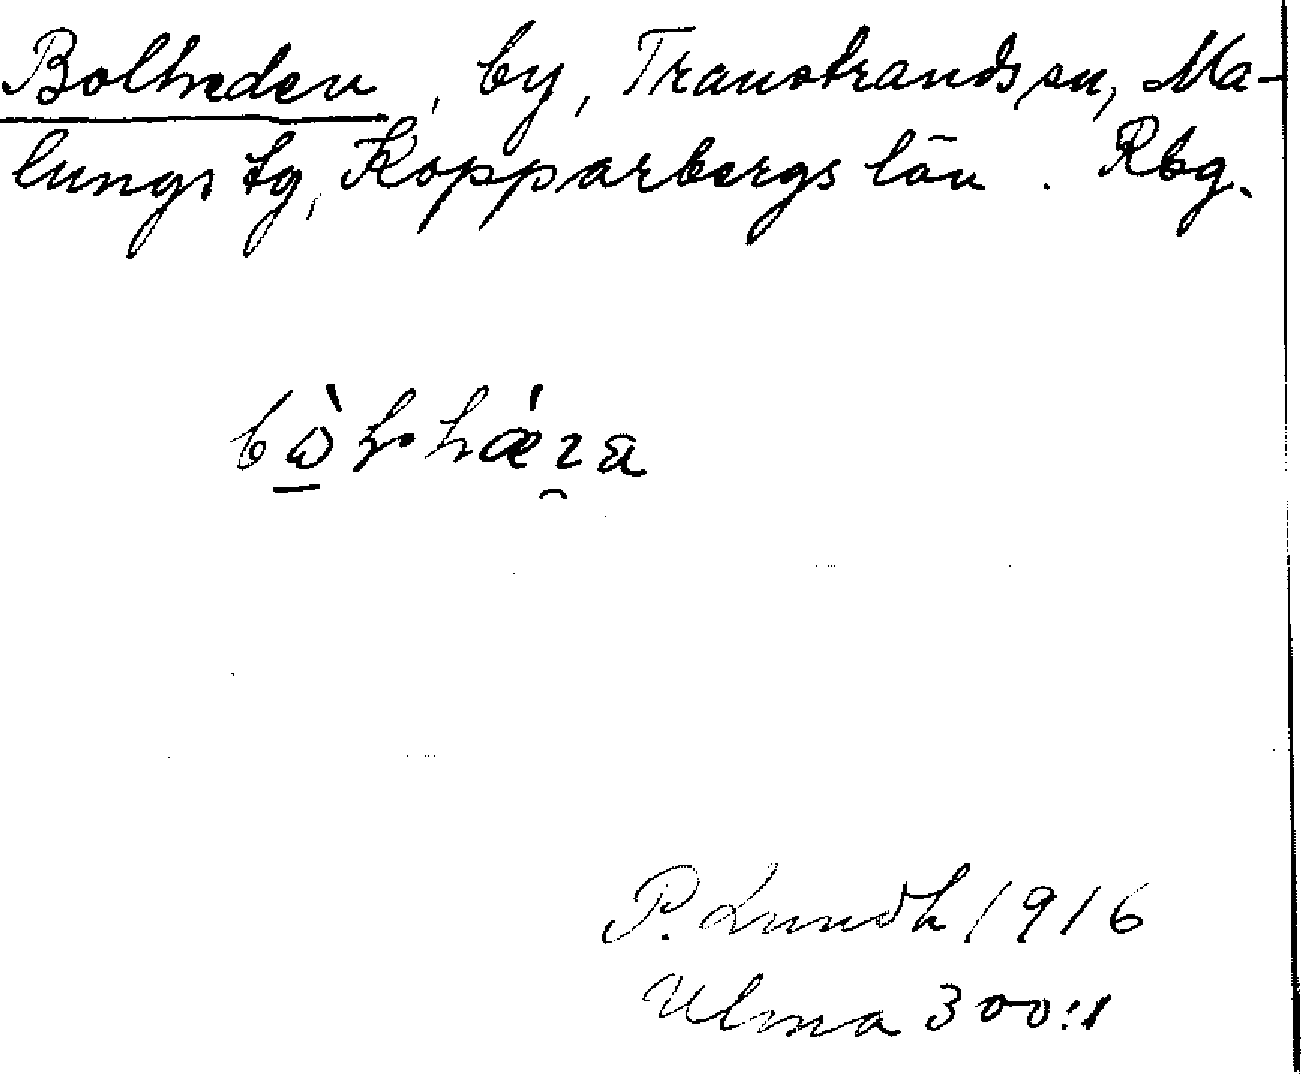 Bolheden, by, Transtrands sn, Ma-
lungs tg, Kopparbergs län. Rbg.
P. Lundh 1916
Ulma 300:1